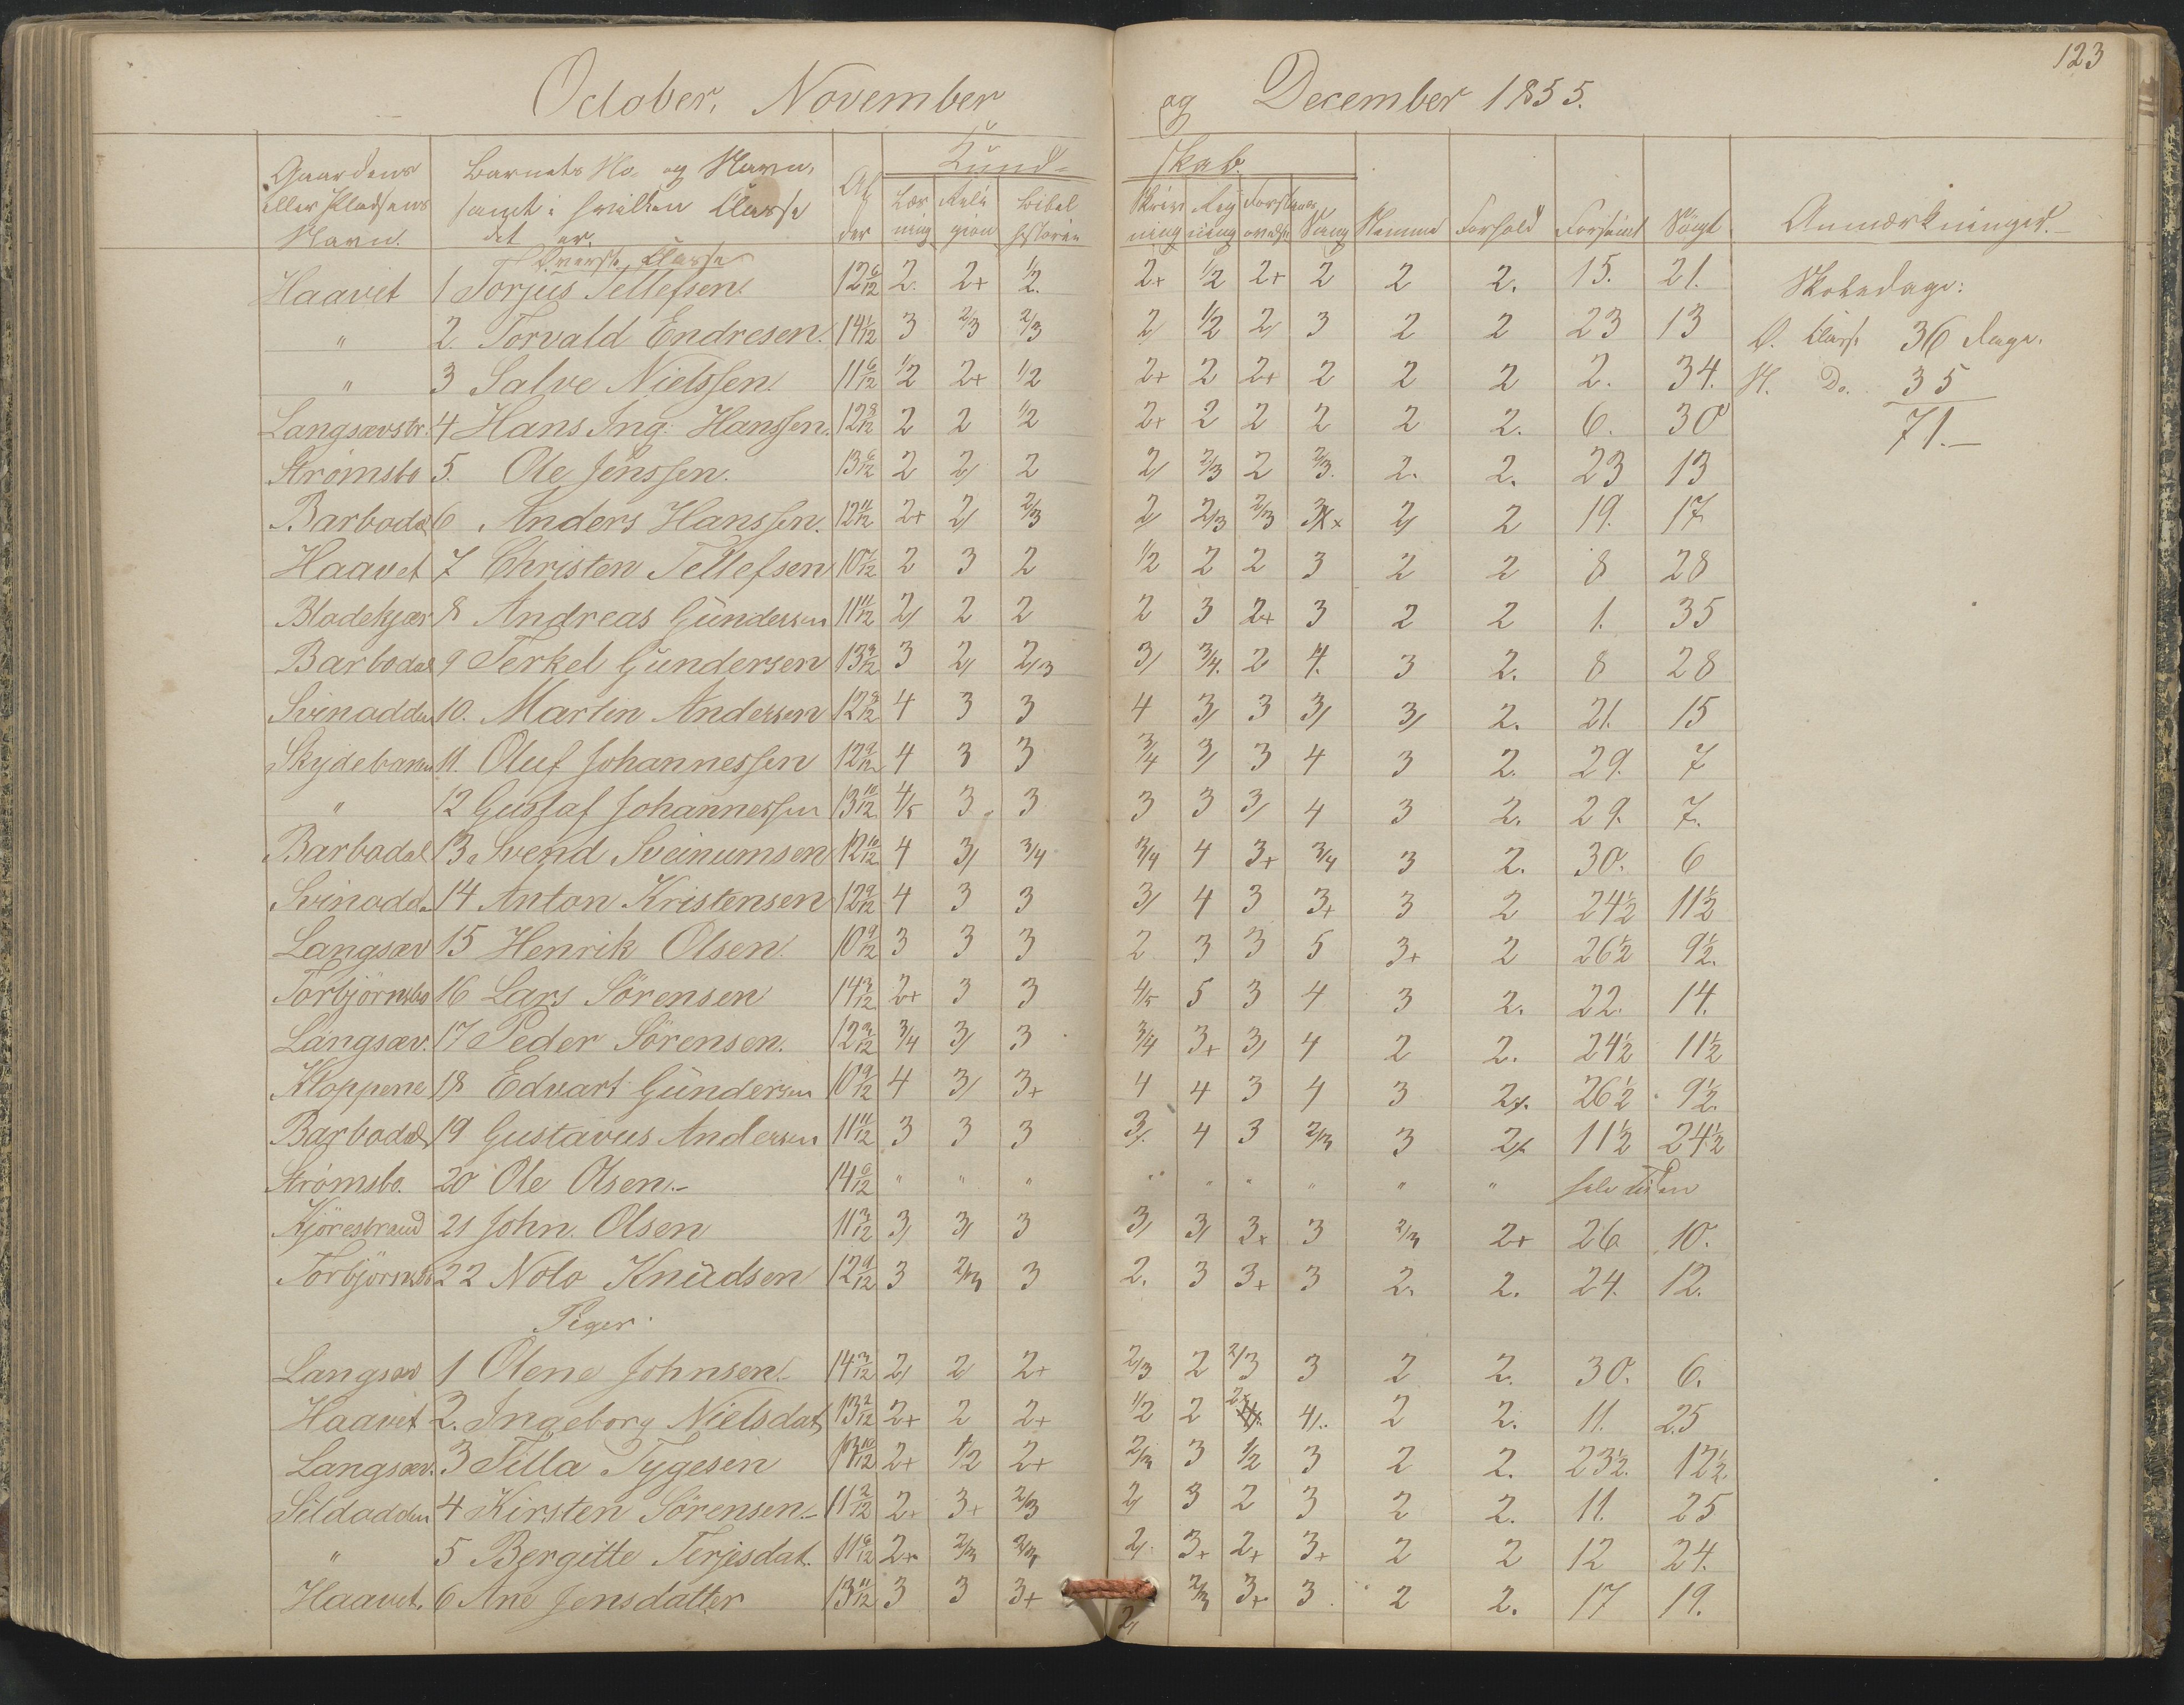 123
October, November og December 1855.
Gaardens eller Pladsens Navn. Barnets No. og Navn, samt i hvilken Classe det er. Alder Kundskab. Hemme Forhold Forsömt Sögt Anmærkninger.
Læsning Religion Bibelhistorie Skrivning Regning Forstandsøvelse Sang
Øverste Classe
Haavet 1 Torjus Tellefsen 12 6/12 2. 2+ 1/2. 2+ 1/2 2+ 2 2 2. 15. 21. Skoledage:
" 2. Torvald Endresen. 14 1/12 3 2/3 2/3 2/ 1/2 2/ 3 2 2 23 13 Ø. Classe 36 Dage.
" 3 Salve Nielssen 11 6/12 1/2 2+ 1/2 2+ 2 2+ 2 2 2 2. 34. N. Do. 35
Langsævstr. 4 Hans Ing. Hanssen. 12 8/12 2 2 1/2 2+ 2 2 2 2 2. 6. 30 71.-
Strömsbo 5. Ole Jenssen. 13 6/12 2 2/ 2 2/ 2/3 2 2/3. 2. 2. 23 13
Barbodal 6 Anders Hanssen. 12 11/12 2+ 2/ 2/3 2/ 2/3 2/3 2/ 2 19. 17
Haavet 7 Christen Tellefsen 10 7/12 2 3 2 1/2 2 2 3 2 2 8 28
Bladekjær 8 Andreas Gundersen 11 11/12 2/ 2 2 2 3 2+ 3 2 2 1. 35
Barbodal 9 Terkel Gundersen 13 9/12 3 2/ 2/3 3/ 3/4. 2 4. 3 2. 8 28
Svinodden 10. Martin Andersen 12 9/12 4 3 3 4 3/ 3 3/ 3/ 2. 21. 15
Skydebanen 11. Oluf Johannessen 12 9/12 4 3 3 3/4 3/ 3 4 3 2. 29. 7
" 12 Gustaf Johannessen 13 10/12 4/5 3 3 3 3 3/ 4 3 2. 29. 7.
Barbodal 13 Svend Sveinumsen 12 10/12 4 3/ 3/4 3/4 4 3+ 3/4 3 2. 30. 6
Svinodd. 14 Anton Kristensen 12 9/12 4 3 3 3/ 4 3 3+ 3 2 24 1/2 11 1/2
Langsæv 15 Henrik Olsen. 10 9/12 3 3 3 2 3 3 5 3+ 2 26 1/2 9 1/2.
Torbjörnsbo 16 Lars Sörensen 14 3/12 2+ 3 3 4/5 5 3 4 3 2. 22. 14.
Langsæv. 17 Peder Sörensen. 12 3/12 3/4 3/ 3 3/4 3+ 3/ 4 2 2. 24 1/2 11 1/2
Kloppene 18 Edvart Gundersen 10 9/12 4 3/ 3+ 4 4 3 4 3 2/. 26 1/2 9 1/2.
Barbodal 19 Gustavus Andersen 11 11/12 3 3 3 3/. 4 3 2/3 3 2/ 11 1/2 24 1/2
Strömsbo. 20 Ole Olsen.- 14 6/12 " " " " " " " " " hele Tiden
Kjörestrand 21 John. Olsen 11 3/12 3/ 3/ 3 3/ 3/ 3+ 3 2/3 2+ 26 10.
Torbjörnsb. 22 Nolo Knudsen 12 9/12 3 2/3 3 2. 3 3+ 3 2. 2. 24. 12.
Piger.
Langsæv 1 Olene Johnsen 14 3/12 2/ 2 2+ 2/3 2 2/3 3 2 2. 30. 6.
Haavet 2. Ingeborg Nielsdat 13 2/12 2+ 2 2+ 1/2 2 2+ 4/. 2 2. 11. 25
Langsæv. 3 Tilla Tygesen 10/12 2+ 1/2 2+ 2/3 3 1/2 3 2 2. 23 1/2. 12 1/2
Sildodden 4 Kirsten Sörensen 11 2/12 2+ 3+ 2/3 2/ 3 2 3 2 2. 11. 25
" 5 Bergitte Terjesdat. 11 6/12 2+ 2/3 2/3 2/. 3+ 2+ 3+ 2 2 12 24.
Haavet. 6 Ane Jensdatter 13 11/12 3 3 3+ 2/ 2/3 3+ 3. 2 2. 17 19.